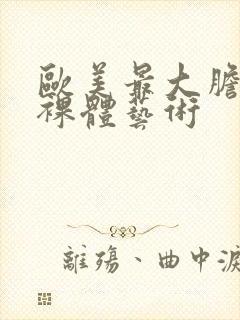 歐美最大膽
裸體藝術
離殤、曲中淚